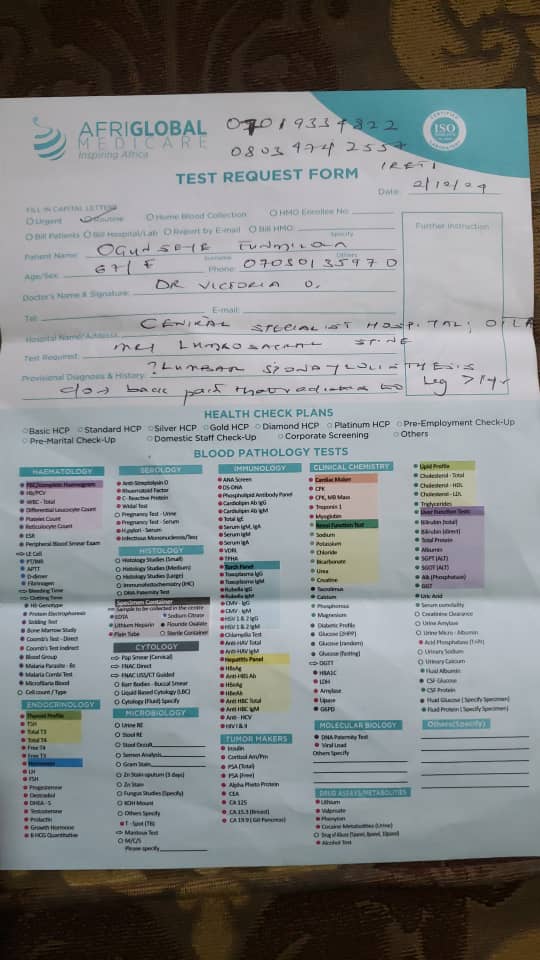 AFRIGLOBAL
MEDICARE
Inspiring Africa
07019334822
0803 474 2557
IRETI
ISO
TEST REQUEST FORM
Date: 2/12/24
FILL IN CAPITAL LETTERS
Urgent Routine Home Blood Collection HMO Enrollee No:
Bill Patients Bill Hospital/Lab Report by E-mail Bill HMO: Specify
Further Instruction
Patient Name:
Surname Others
Age/Sex: 67/F Phone: 07030135970
Doctor's Name & Signature: DR VICTORIA O.
Tel: E-mail:
Hospital Name/Address: CENTRAL SPECIALIST HOSPITAL,
Test Required: MRI LUMBOSACRAL SPINE
Provisional Diagnosis & History: ?LUMBAR SPONDYLOLISTHESIS
back pain that radiates to leg > 1yr
HEALTH CHECK PLANS
Basic HCP Standard HCP Silver HCP Gold HCP Diamond HCP Platinum HCP Pre-Employment Check-Up
Pre-Marital Check-Up Domestic Staff Check-Up Corporate Screening Others
BLOOD PATHOLOGY TESTS
HAEMATOLOGY
FBC/Complete Haemogram
Hb/PCV
WBC - Total
Differential Leucocyte Count
Platelet Count
Reticulocyte Count
ESR
Peripheral Blood Smear Exam
LE Cell
PT/INR
APTT
D-dimer
Fibrinogen
Bleeding Time
Clotting Time
HB Genotype
Protein Electrophoresis
Sickling Test
Bone Marrow Study
Coomb's Test - Direct
Coomb's Test Indirect
Blood Group
Malaria Parasite - Bs
Malaria Combo Test
Microfilaria Blood
Cell count / Type
ENDOCRINOLOGY
Thyroid Profile
TSH
Total T3
Total T4
Free T4
Free T3
Hormones
LH
FSH
Progesterone
Oestradiol
DHEA - S
Testosterone
Prolactin
Growth Hormone
B HCG Quantitative
SEROLOGY
Anti-Streptolysin O
Rheumatoid Factor
C - Reactive Protein
Widal Test
Pregnancy Test - Urine
Pregnancy Test - Serum
H.pylori - Serum
Infectious Mononucleosis/Test
HISTOLOGY
Histology Studies (Small)
Histology Studies (Medium)
Histology Studies (Large)
Immunohistochemistry (IHC)
DNA Paternity Test
Specimen Container
Sample to be collected in the centre
EDTA Sodium Citrate
Lithium Heparin Flouride Oxalate
Plain Tube Sterile Container
CYTOLOGY
Pap Smear (Cervical)
FNAC Direct
FNAC USS/CT Guided
Barr Bodies - Buccal Smear
Liquid Based Cytology (LBC)
Cytology (Fluid) Specify
MICROBIOLOGY
Urine RE
Stool RE
Stool Occult
Semen Analysis
Gram Stain
Zn Stain sputum (3 days)
Zn Stain
Fungus Studies (Specify)
KOH Mount
Others Specify
T - Spot (TB)
Mantoux Test
M/C/S
Please specify
IMMUNOLOGY
ANA Screen
DS-DNA
Phospholipid Antibody Panel
Cardiolipin Ab IgG
Cardiolipin Ab IgM
Total IgE
Serum IgE, IgA
Serum IgM
Serum IgA
VDRL
TPHA
Torch Panel
Toxoplasma IgG
Toxoplasma IgM
Rubella IgG
Rubella IgM
CMV - IgG
CMV - IgM
HSV 1 & 2 IgG
HSV 1 & 2 IgM
Chlamydia Test
Anti-HAV Total
Anti-HAV IgM
Hepatitis Panel
HBsAg
Anti-HBS Ab
HBeAg
HBeAb
Anti HBC Total
Anti HBC IgM
Anti - HCV
HIV I & II
TUMOR MAKERS
Insulin
Cortisol Am/Pm
PSA (Total)
PSA (Free)
Alpha Photo Protein
CEA
CA 125
CA 15.3 (Breast)
CA 19.9 (GIt Pancreas)
CLINICAL CHEMISTRY
Cardiac Maker
CPK
CPK, MB Mass
Troponin 1
Myoglobin
Renal Function Test
Sodium
Potassium
Chloride
Bicarbonate
Urea
Creatine
Tacrolimus
Calcium
Phosphorous
Magnesium
Diabetic Profile
Glucose (2HPP)
Glucose (random)
Glucose (fasting)
OGTT
HBA1C
LDH
Amylase
Lipase
G6PD
MOLECULAR BIOLOGY
DNA Paternity Test
Viral Load
Others Specify
DRUG ASSAYS/METABOLITIES
Lithium
Valproate
Phenyton
Cocaine Metabolities (Urine)
Drug of Abuse (5panel, 8panel, 10panel)
Alcohol Test
Lipid Profile
Cholesterol - Total
Cholesterol - HDL
Cholesterol - LDL
Triglycerides
Liver Function Tests
Bilirubin (total)
Bilirubin (direct)
Total Protein
Albumin
SGPT (ALT)
SGOT (ALT)
Alk (Phosphatase)
GGT
Uric Acid
Serum osmolality
Creatinine Clearance
Urine Amylase
Urine Micro - Albumin
Acid Phosphatase (T/Pr)
Urinary Sodium
Urinary Calcium
Fluid Albumin
CSF Glucose
CSF Protein
Fluid Glucose ( Specify Specimen)
Fluid Protein ( Specify Specimen)
Others(Specify)